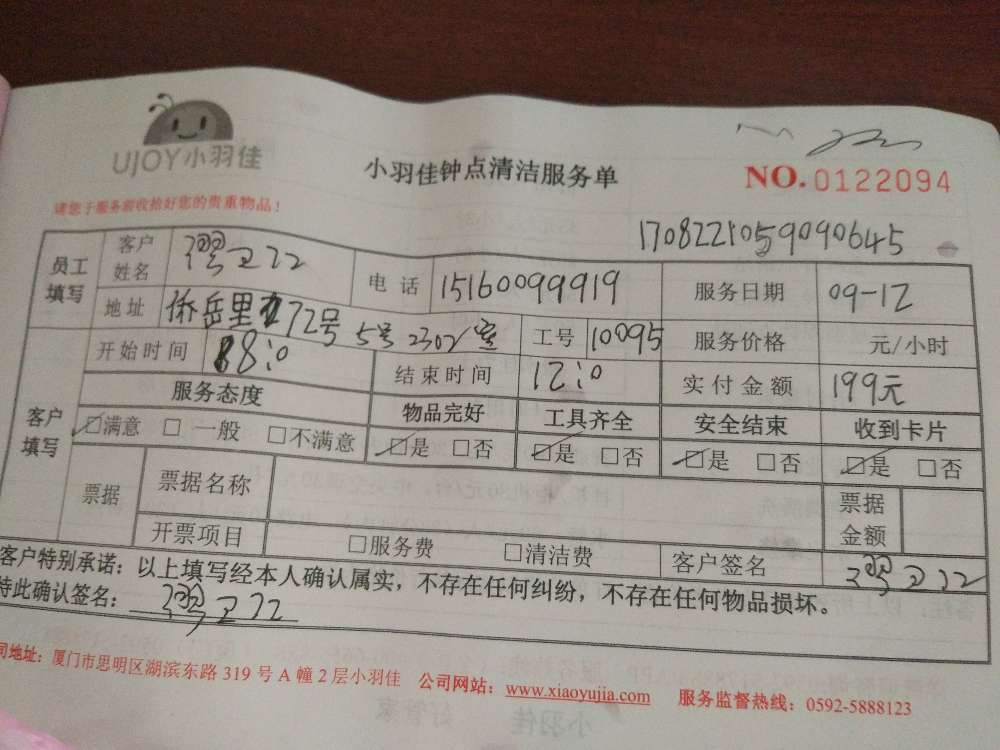 UJOY小羽佳
小羽佳钟点清洁服务单
NO.0122094
请您于服务前收拾好您的贵重物品!
1708221059090645
员工填写 客户姓名 电话 15160099919 服务日期 09-12
地址 侨岳里172号 5号2302室 工号 10095 服务价格 元/小时
开始时间 8:0 结束时间 12:0 实付金额 199元
客户填写 服务态度 物品完好 工具齐全 安全结束 收到卡片
☑满意 □一般 □不满意 ☑是 □否 ☑是 □否 ☑是 □否 ☑是 □否
票据 票据名称 票据金额
开票项目 □服务费 □清洁费 客户签名
客户特别承诺：以上填写经本人确认属实，不存在任何纠纷，不存在任何物品损坏。
特此确认签名：
司地址：厦门市思明区湖滨东路 319 号 A 幢 2 层小羽佳 公司网站：www.xiaoyujia.com 服务监督热线：0592-5888123